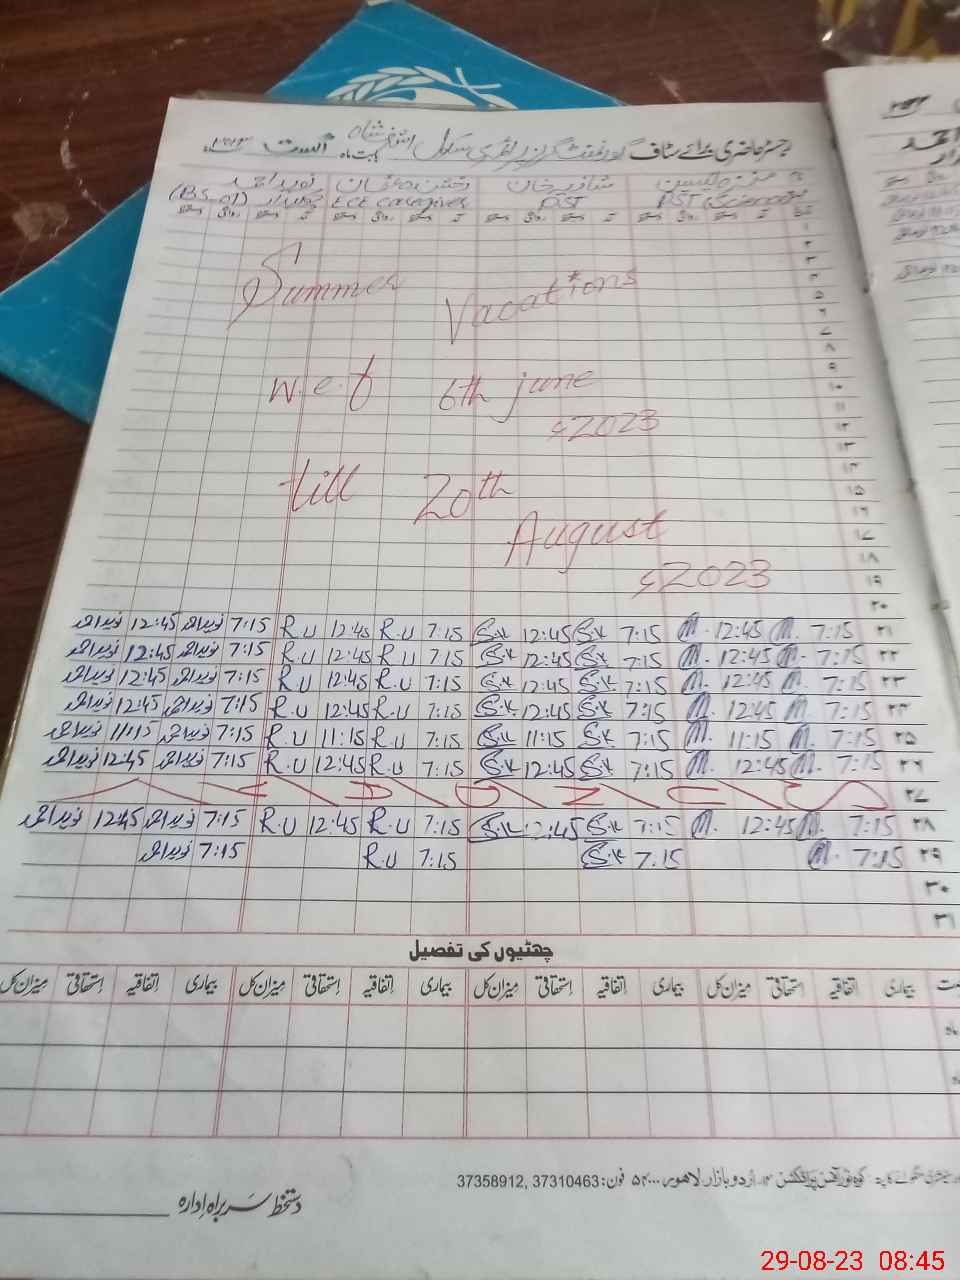 رجسٹر حاضری برائے سٹاف گورنمنٹ گرلز پرائمری سکول بابت ماہ اگست ۲۰۲۳ء
شازیہ خان نوید احمد
PST (Science) PST ECE Caregiver چوکیدار (BS-01)
۱
۲
۳
۴
۵
۶
۷
۸
۹
۱۰
۱۱
۱۲
۱۳
۱۴
۱۵
۱۶
۱۷
۱۸
۱۹
۲۰
Summer Vacations
w.e.f 6th june
2023
till 20th
August
2023
۲۱ 7:15 M. 12:45 M. 7:15 S.K 12:45 S.K 7:15 R.U 12:45 R.U 7:15 نوید احمد 12:45 نوید احمد
۲۲ 7:15 M. 12:45 M. 7:15 S.K 12:45 S.K 7:15 R.U 12:45 R.U 7:15 نوید احمد 12:45 نوید احمد
۲۳ 7:15 M. 12:45 M. 7:15 S.K 12:45 S.K 7:15 R.U 12:45 R.U 7:15 نوید احمد 12:45 نوید احمد
۲۴ 7:15 M. 12:45 M. 7:15 S.K 12:45 S.K 7:15 R.U 12:45 R.U 7:15 نوید احمد 12:45 نوید احمد
۲۵ 7:15 M. 11:15 M. 7:15 S.K 11:15 S.K 7:15 R.U 11:15 R.U 7:15 نوید احمد 11:15 نوید احمد
۲۶ 7:15 M. 12:45 M. 7:15 S.K 12:45 S.K 7:15 R.U 12:45 R.U 7:15 نوید احمد 12:45 نوید احمد
۲۷
۲۸ 7:15 M. 12:45 M. 7:15 S.K 12:45 S.K 7:15 R.U 12:45 R.U 7:15 نوید احمد 12:45 نوید احمد
۲۹ 7:15 M. 7:15 S.K 7:15 R.U 7:15 نوید احمد
۳۰
۳۱
چھٹیوں کی تفصیل
بیماری اتفاقیہ استحقاقی میزان کل بیماری اتفاقیہ استحقاقی میزان کل بیماری اتفاقیہ استحقاقی میزان کل بیماری اتفاقیہ استحقاقی میزان کل
اردو بازار لاہور۔ ۵۴۰۰۰ فون: 37310463, 37358912
دستخط سربراہ ادارہ
29-08-23 08:45